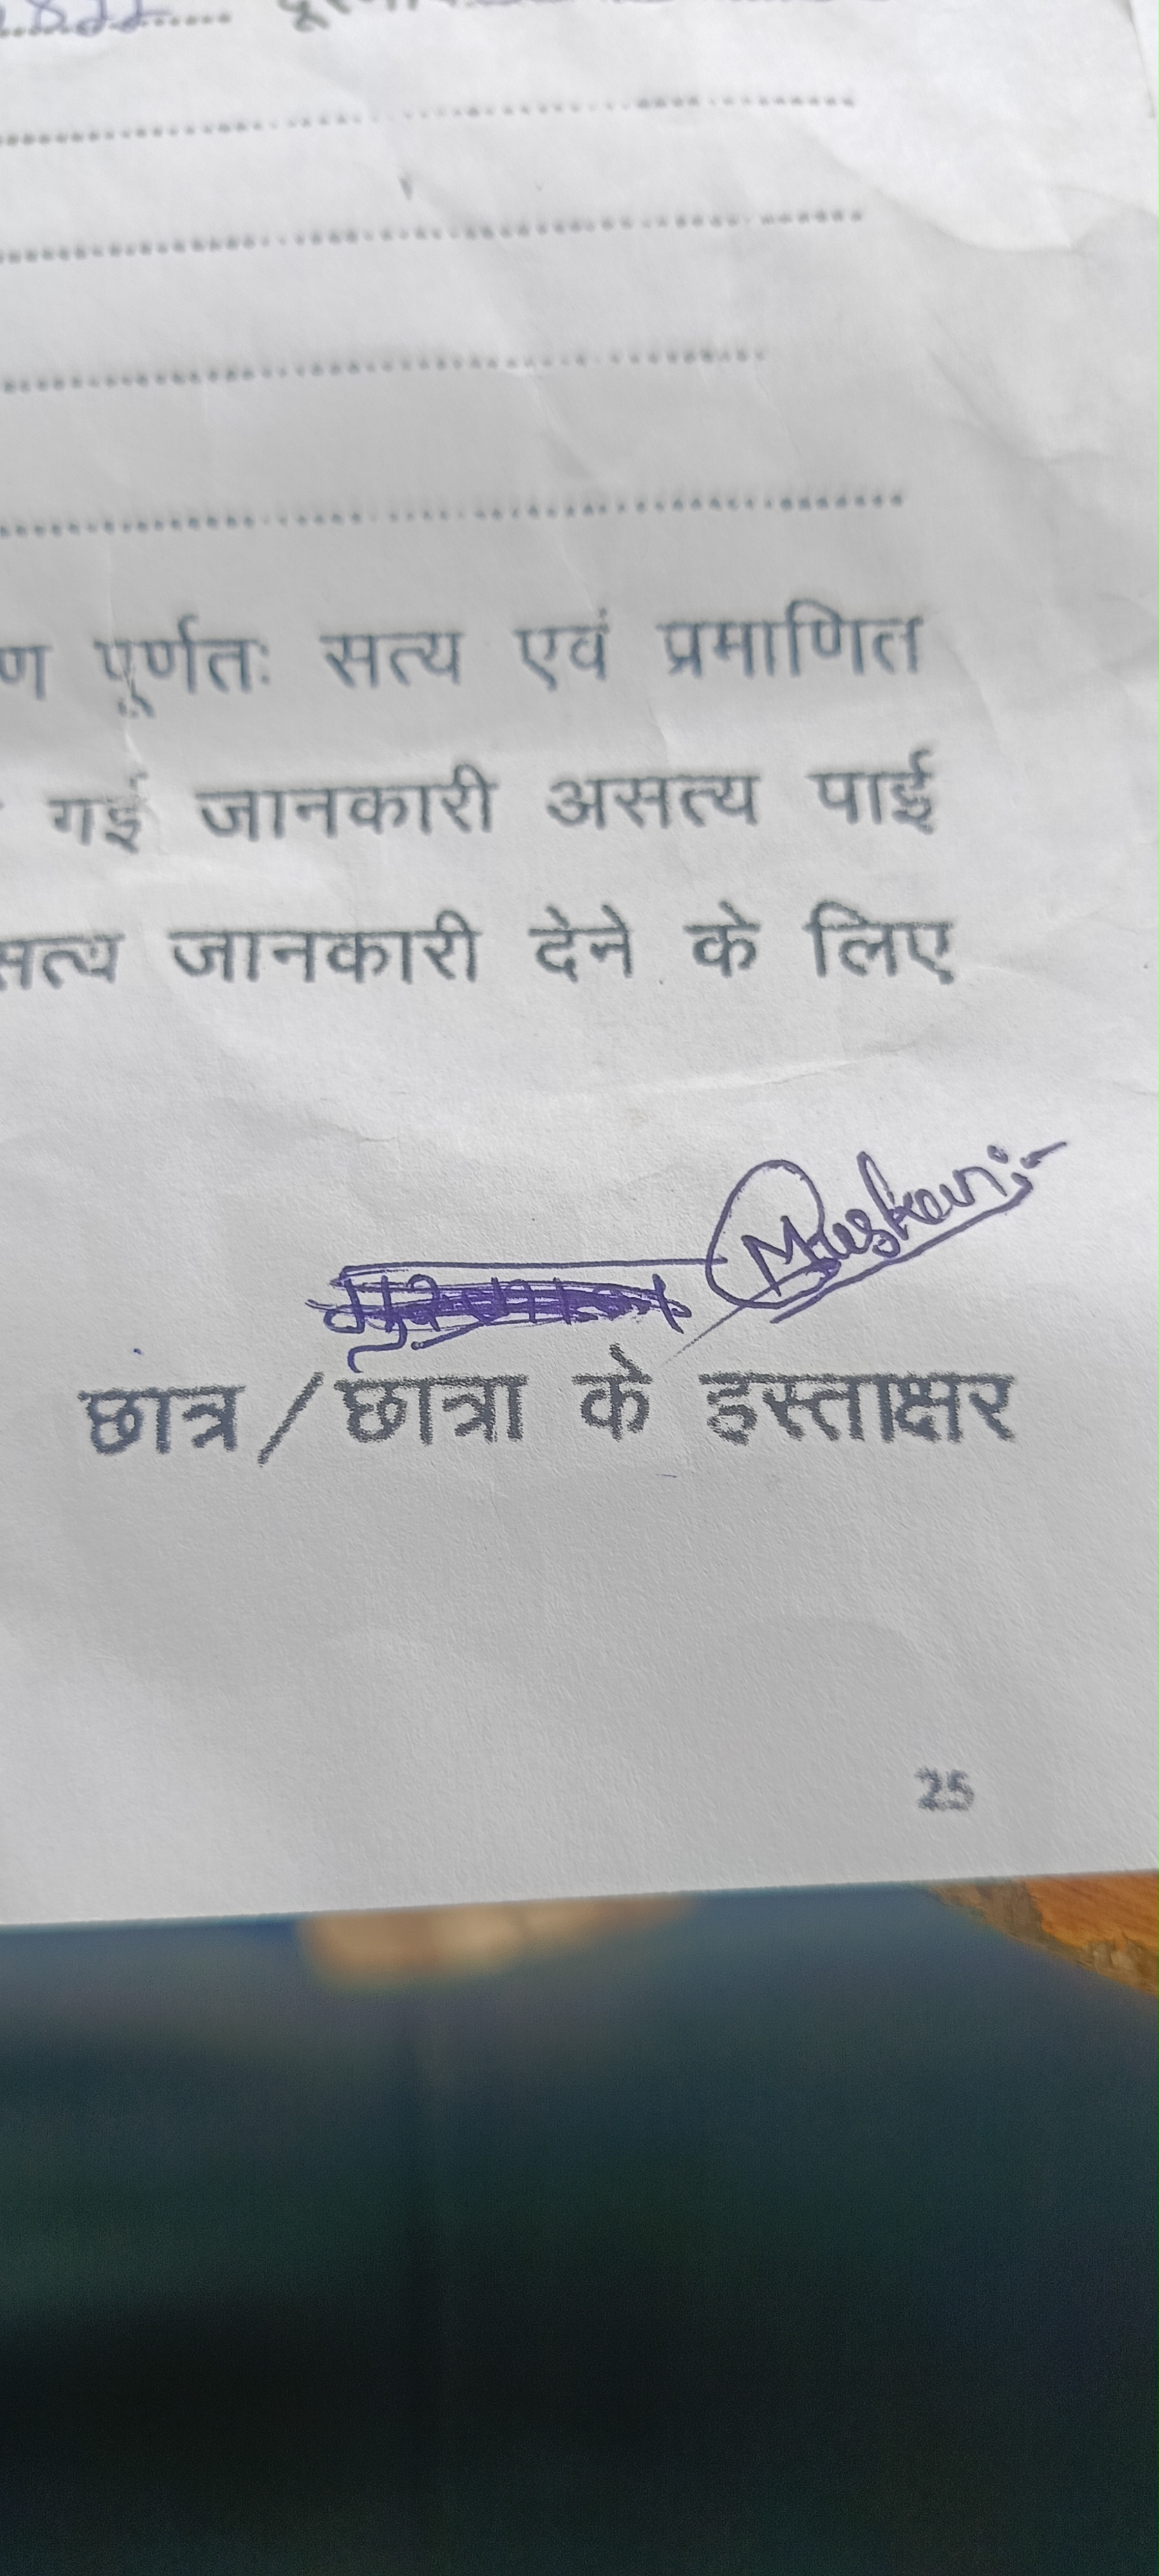 पूर्णतः सत्य एवं प्रमाणित
गई जानकारी असत्य पाई
सत्य जानकारी देने के लिए
Muskan
छात्र / छात्रा के हस्ताक्षर
25